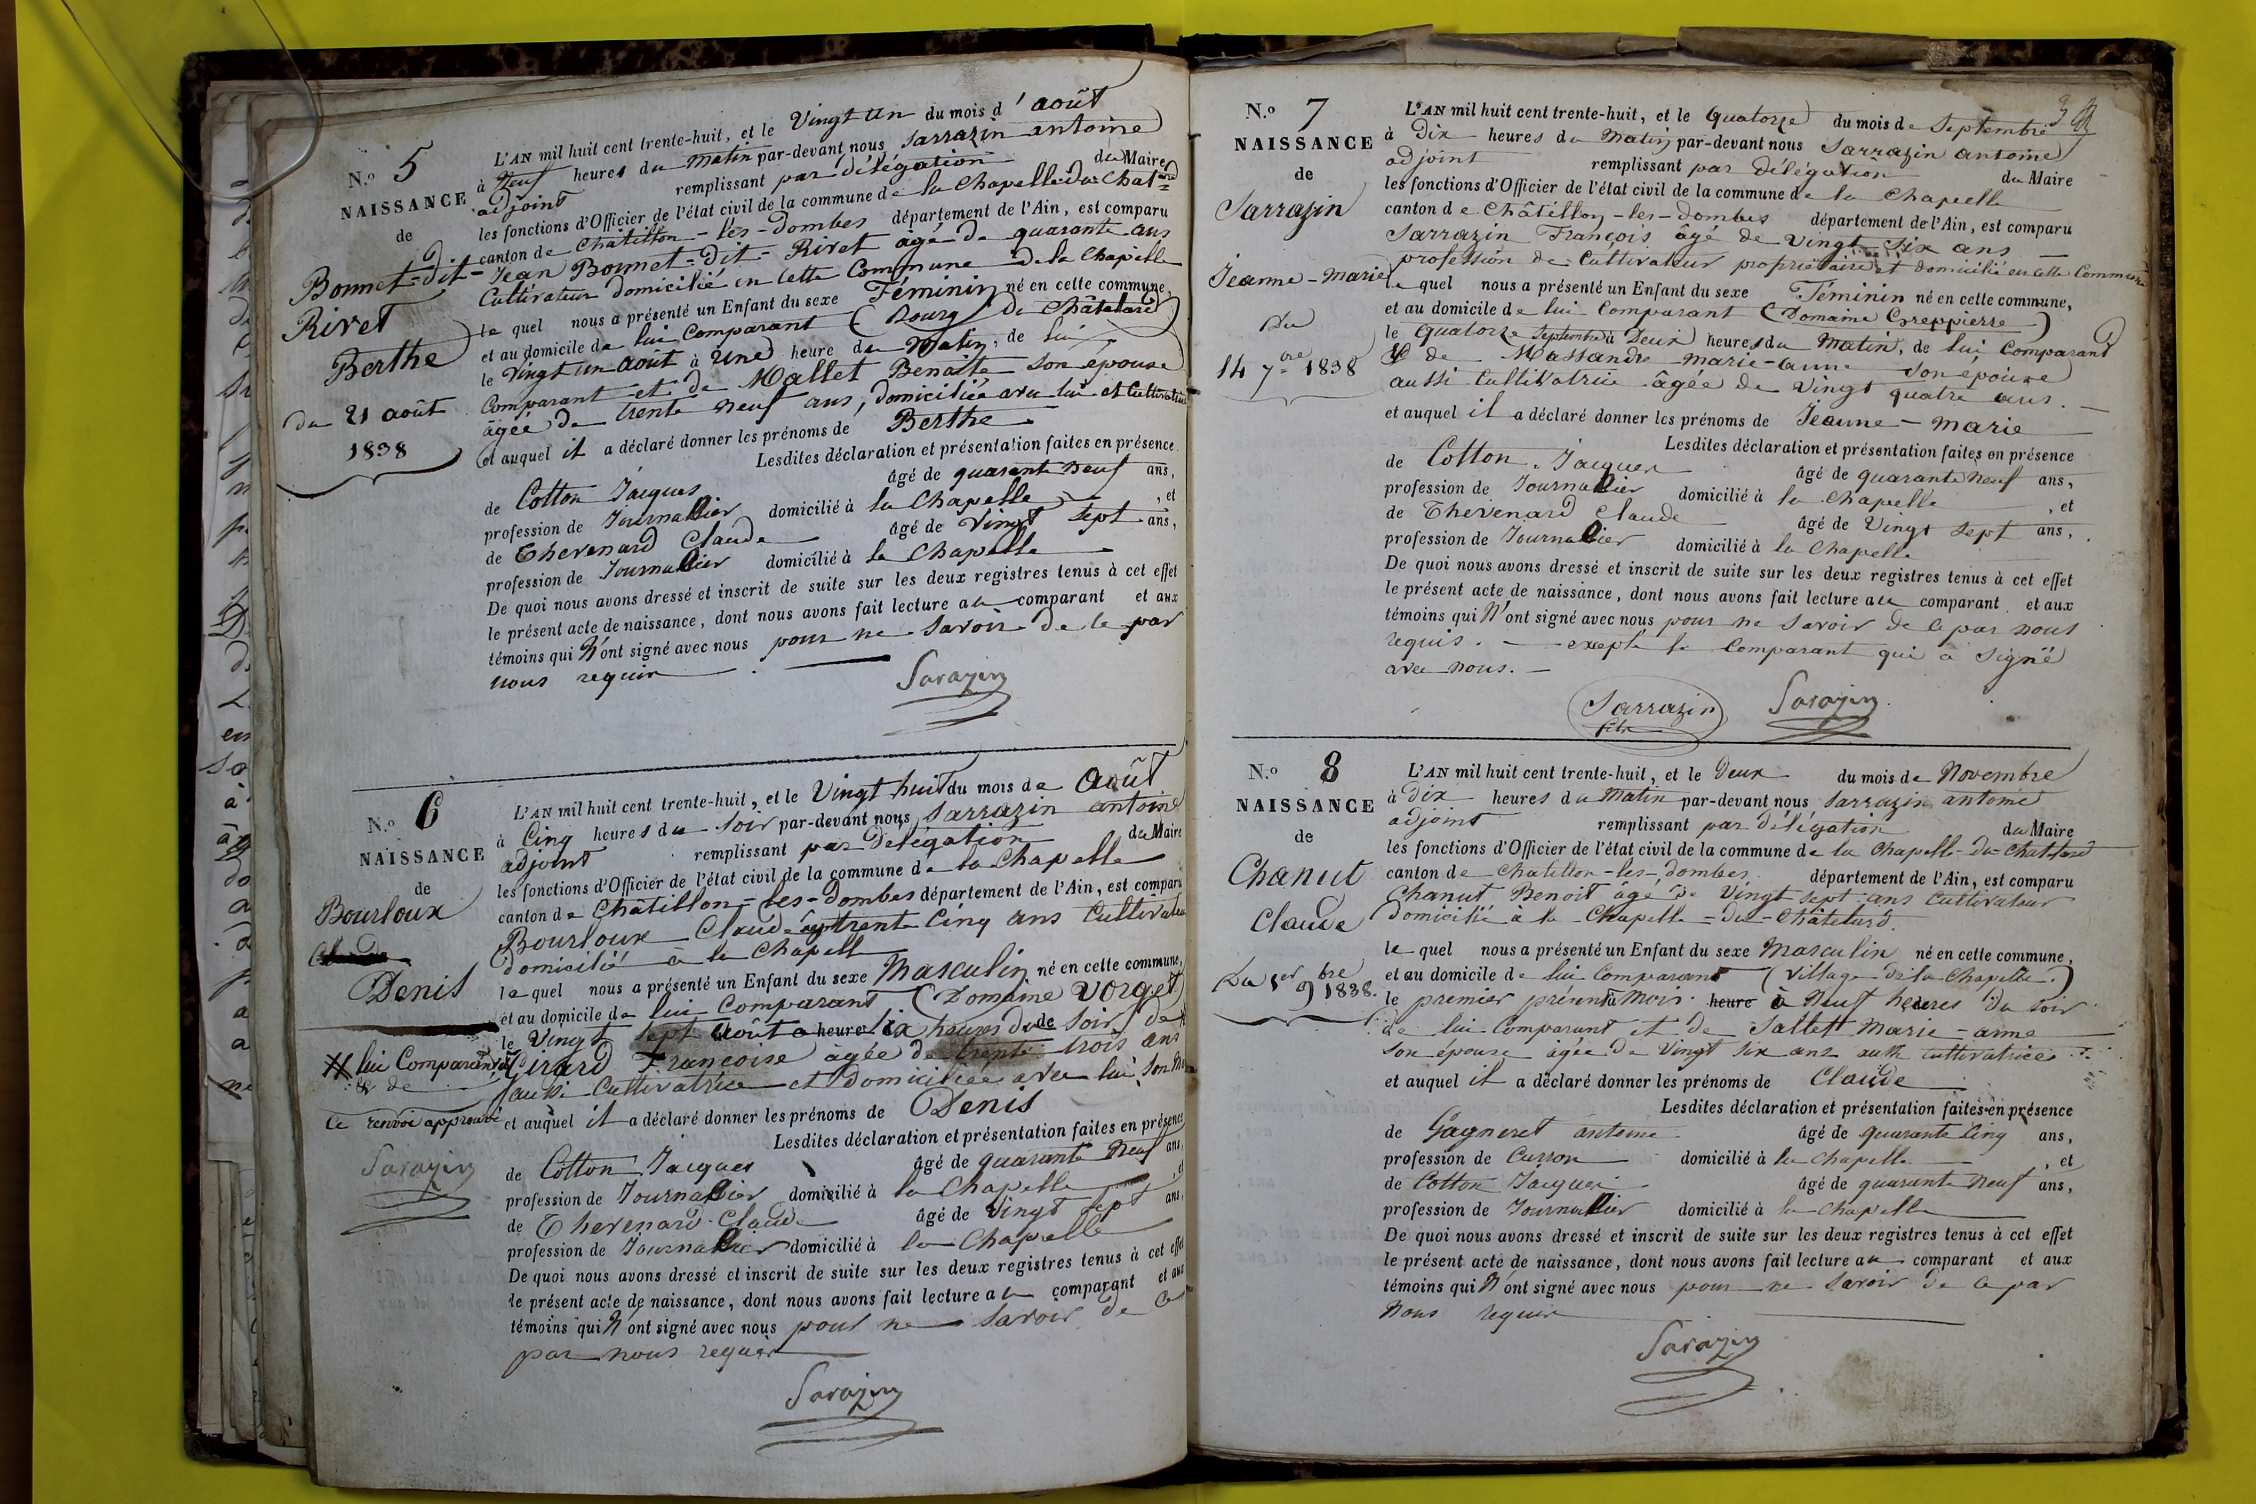 N.º 5
NAISSANCE
de
Bonnet-dit-
Rivet
Berthe
du 21 août
1838
L'AN mil huit cent trente-huit, et le Vingt un du mois d'août
à Neuf heures du matin par-devant nous Sarrazin antoine
adjoint remplissant par délégation du Maire
les fonctions d'Officier de l'état civil de la commune de la Chapelle du Chat
canton de Châtillon-les-dombes département de l'Ain, est comparu
Jean Bonnet-dit-Rivet âgé de quarante ans
Cultivateur domicilié en cette Commune de la Chapelle
lequel nous a présenté un Enfant du sexe Féminin né en cette commune,
et au domicile de lui Comparant (Bourg du Châtelard)
le Vingt un août à une heure du matin, de lui
Comparant et de Mallet Benoîte son epouse
âgée de trente neuf ans, domiciliée avec lui et Cultivatrice
et auquel il a déclaré donner les prénoms de Berthe
Lesdites déclaration et présentation faites en présence
de Cotton Jacques âgé de quarante neuf ans,
profession de Journallier domicilié à la Chapelle , et
de Thevenard Claude âgé de Vingt sept ans,
profession de Journallier domicilié à la Chapelle
De quoi nous avons dressé et inscrit de suite sur les deux registres tenus à cet effet
le présent acte de naissance, dont nous avons fait lecture au comparant et aux
témoins qui n'ont signé avec nous pour ne savoir de ce par
nous requis
Sarazin
N.º 6
NAISSANCE
de
Bourloux
Denis
lui Comparant
& de
Ce renvoi approuvé
Sarazin
L'AN mil huit cent trente-huit, et le Vingt huit du mois de Août
à Cinq heures du soir par-devant nous Sarrazin antoine
adjoint remplissant par Délégation du Maire
les fonctions d'Officier de l'état civil de la commune de la Chapelle
canton de Châtillon-les-Dombes département de l'Ain, est comparu
Bourloux Claude âgé trente Cinq ans Cultivateur
domicilié à la Chapell
lequel nous a présenté un Enfant du sexe Masculin né en cette commune,
et au domicile de lui Comparant (Domaine Vorget)
le Vingt sept août a heure six heures du soir, de
Girard Françoise âgée de trente trois ans
aussi Cultivatrice et domiciliée avec lui, son
et auquel il a déclaré donner les prénoms de Denis
Lesdites déclaration et présentation faites en présence
de Cotton Jacques âgé de quarante neuf ans,
profession de Journallier domicilié à la Chapelle , et
de Thevenard Claude âgé de Vingt sept ans,
profession de Journallier domicilié à la Chapelle
De quoi nous avons dressé et inscrit de suite sur les deux registres tenus à cet effet
le présent acte de naissance, dont nous avons fait lecture au comparant et aux
témoins qui n'ont signé avec nous pour ne savoir de ce
par nous requis
Sarazin
N.º 7
NAISSANCE
de
Sarrazin
Jeanne-Marie
du
14 7bre 1838
L'AN mil huit cent trente-huit, et le quatorze du mois de Septembre
à Dix heures du matin par-devant nous Sarrazin antoine
adjoint remplissant par délégation du Maire
les fonctions d'Officier de l'état civil de la commune de la Chapelle
canton de Châtillon-les-dombes département de l'Ain, est comparu
Sarrazin François âgé de vingt six ans
profession de Cultivateur propriétaire et domicilié en cette Commune
lequel nous a présenté un Enfant du sexe Féminin né en cette commune,
et au domicile de lui Comparant (Domaine Greppierre)
le quatorze Septembre à Deux heures du matin, de lui Comparant
& de Massandre marie-anne son epouse
aussi Cultivatrice âgée de Vingt quatre ans.
et auquel il a déclaré donner les prénoms de Jeanne-marie
Lesdites déclaration et présentation faites en présence
de Cotton Jacques âgé de quarante neuf ans,
profession de Journallier domicilié à la Chapelle , et
de Thevenard Claude âgé de Vingt sept ans,
profession de Journallier domicilié à la Chapelle
De quoi nous avons dressé et inscrit de suite sur les deux registres tenus à cet effet
le présent acte de naissance, dont nous avons fait lecture au comparant et aux
témoins qui n'ont signé avec nous pour ne savoir de ce par nous
requis. excepté le Comparant qui a signé
avec nous.
Sarrazin
Sarazin
N.º 8
NAISSANCE
de
Chanut
Claude
Du 1er 9bre 1838.
L'AN mil huit cent trente-huit, et le Deux du mois de Novembre
à Dix heures du matin par-devant nous Sarrazin antoine
adjoint remplissant par délégation du Maire
les fonctions d'Officier de l'état civil de la commune de la Chapelle-du-Chatelard
canton de Chatillon-les-dombes département de l'Ain, est comparu
Chanut Benoit âgé de Vingt sept ans cultivateur
Domicilié à la Chapelle-du-Châtelard.
lequel nous a présenté un Enfant du sexe Masculin né en cette commune,
et au domicile de lui Comparant (village de la Chapelle.)
le premier présent mois. heure à Neuf heures du soir
de lui Comparant et de Sallett Marie-anne
son épouse âgée de Vingt six ans cultivatrice
et auquel il a déclaré donner les prénoms de Claude
Lesdites déclaration et présentation faites en présence
de Gagneret antoine âgé de quarante Cinq ans,
profession de Curson domicilié à la Chapelle , et
de Cotton Jacques âgé de quarante neuf ans,
profession de Journallier domicilié à la Chapelle
De quoi nous avons dressé et inscrit de suite sur les deux registres tenus à cet effet
le présent acte de naissance, dont nous avons fait lecture au comparant et aux
témoins qui n'ont signé avec nous pour ne savoir de ce par
nous requis
Sarazin